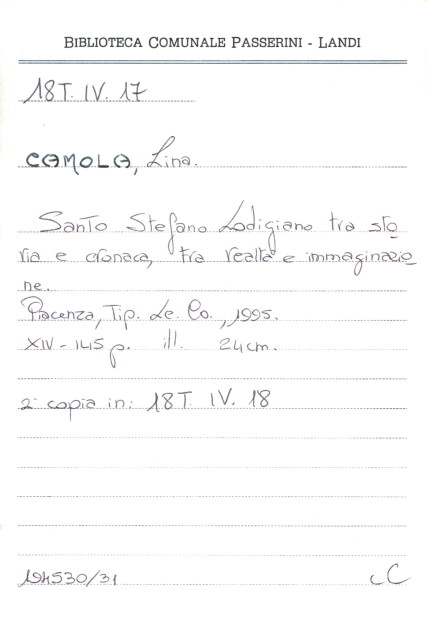 BIBLIOTECA COMUNALE PASSERINI - LANDI
18T. IV. 17
CAMOLA, Lina.
Santo Stefano Lodigiano tra sto
ria e cronaca, tra realtà e immaginazio
ne.
Piacenza, Tip. Le. Co., 1995.
XIV - 145 p. ill. 24 cm.
2ª copia in: 18T. IV. 18
194530/31
CC